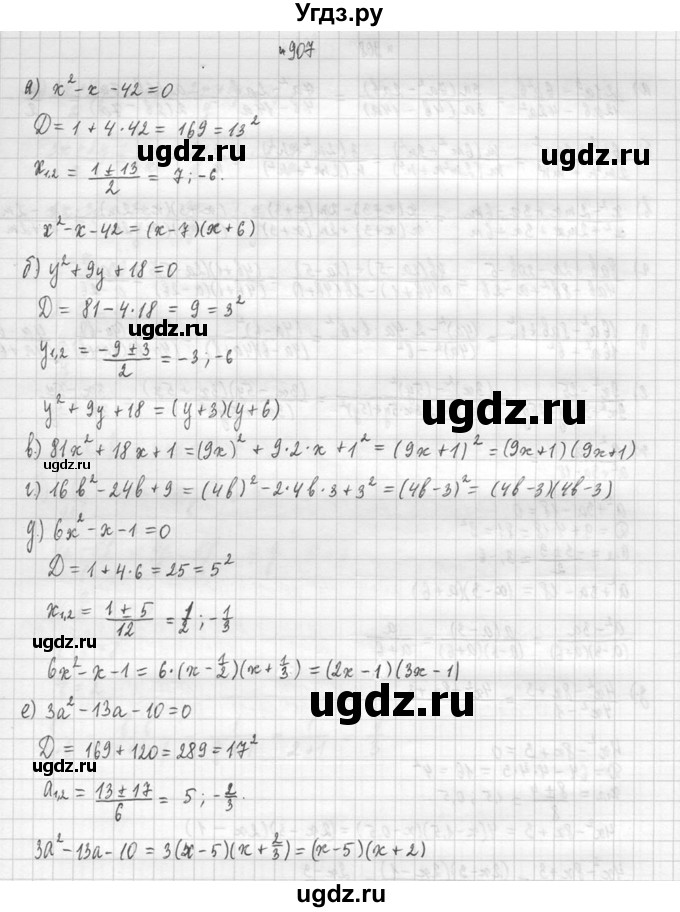 Угдз.ру
№907
а) x² - x - 42 = 0
D = 1 + 4·42 = 169 = 13²
ugdz.ru
ugdz.ru
x₁,₂ = (1 ± 13)/2 = 7; -6.
x² - x - 42 = (x - 7)(x + 6)
б) y² + 9y + 18 = 0
D = 81 - 4·18 = 9 = 3²
ugdz.ru
y₁,₂ = (-9 ± 3)/2 = -3; -6
y² + 9y + 18 = (y + 3)(y + 6)
ugdz.ru
в) 81x² + 18x + 1 = (9x)² + 9·2·x + 1² = (9x + 1)² = (9x + 1)(9x + 1)
г) 16b² - 24b + 9 = (4b)² - 2·4b·3 + 3² = (4b - 3)² = (4b - 3)(4b - 3)
д) 6x² - x - 1 = 0
D = 1 + 4·6 = 25 = 5²
x₁,₂ = (1 ± 5)/12 = 1/2; -1/3
ugdz.ru
6x² - x - 1 = 6·(x - 1/2)(x + 1/3) = (2x - 1)(3x - 1)
ugdz.ru
е) 3a² - 13a - 10 = 0
D = 169 + 120 = 289 = 17²
ugdz.ru
a₁,₂ = (13 ± 17)/6 = 5; -2/3.
3a² - 13a - 10 = 3(x - 5)(x + 2/3) = (x - 5)(x + 2)
ugdz.ru